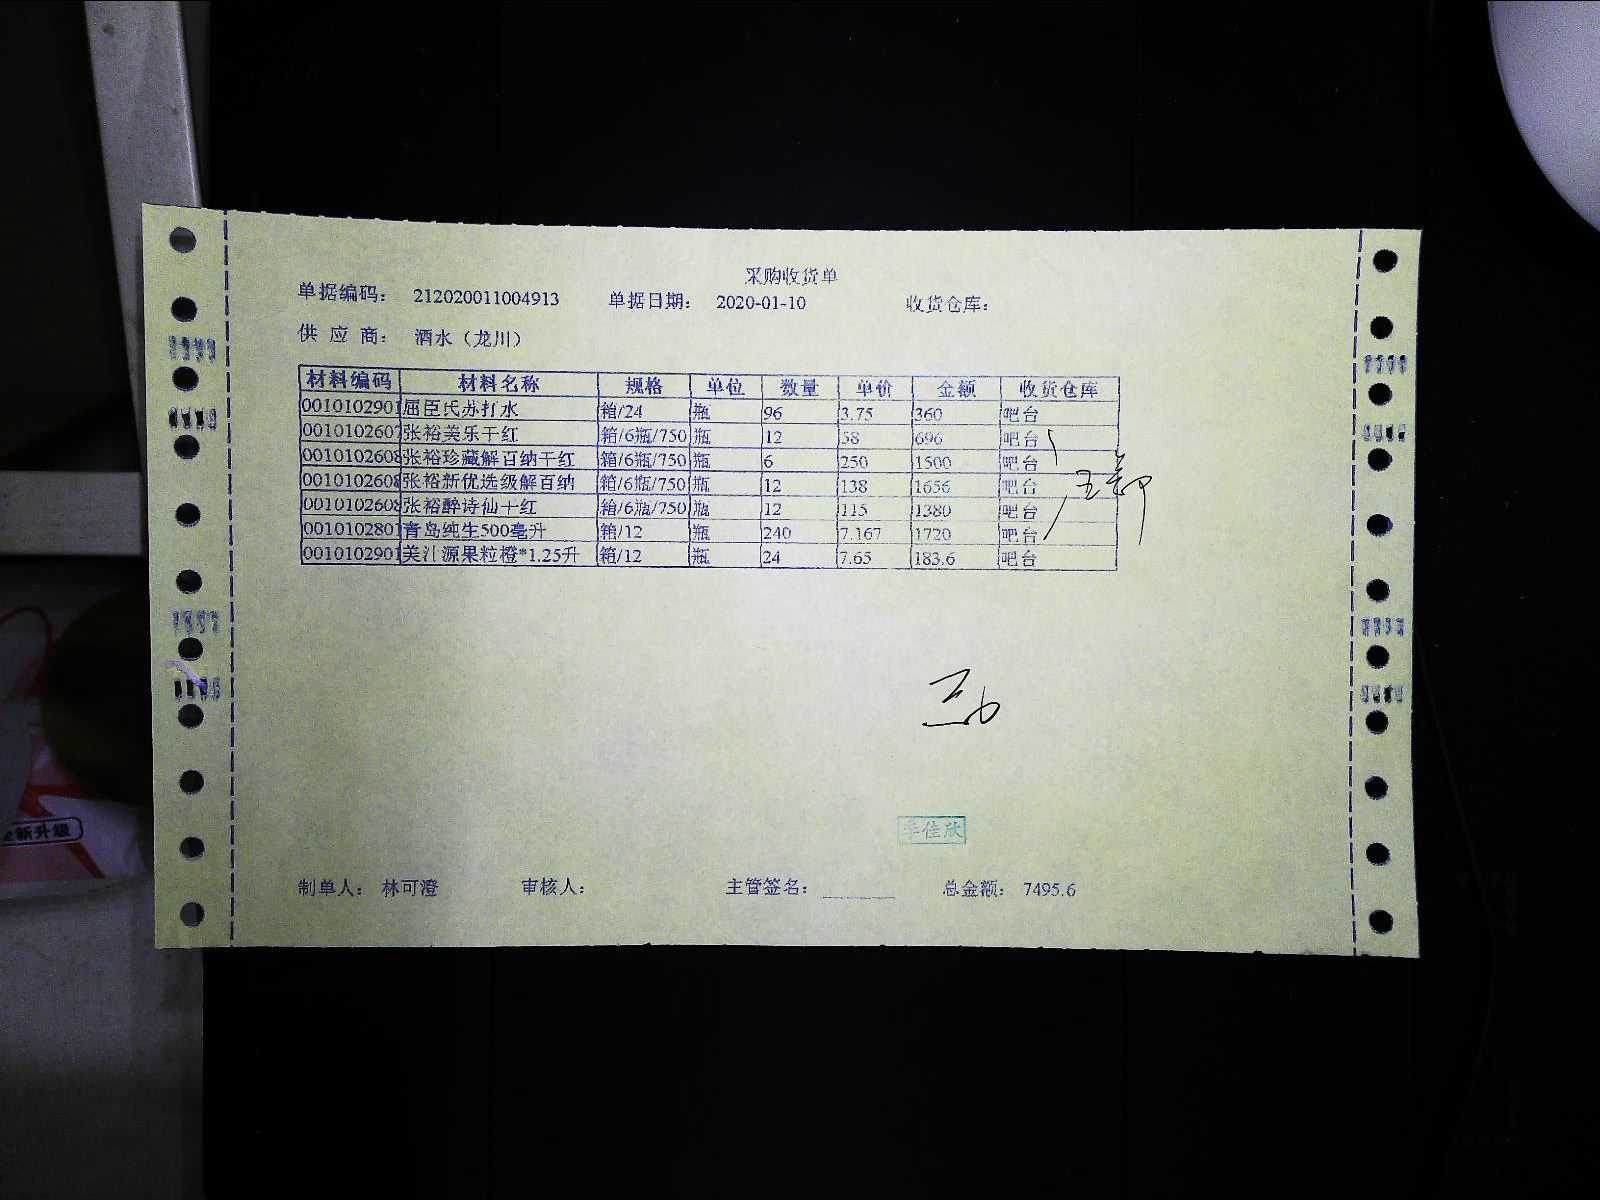 采购收货单
单据编码： 212020011004913 单据日期： 2020-01-10 收货仓库：
供 应 商： 酒水（龙川）
材料编码 材料名称 规格 单位 数量 单价 金额 收货仓库
0010102901 屈臣氏苏打水 箱/24 瓶 96 3.75 360 吧台
0010102607 张裕美乐干红 箱/6瓶/750 瓶 12 58 696 吧台
0010102608 张裕珍藏解百纳干红 箱/6瓶/750 瓶 6 250 1500 吧台
0010102608 张裕新优选级解百纳 箱/6瓶/750 瓶 12 138 1656 吧台
0010102608 张裕醉诗仙干红 箱/6瓶/750 瓶 12 115 1380 吧台
0010102801 青岛纯生500毫升 箱/12 瓶 240 7.167 1720 吧台
0010102901 美汁源果粒橙*1.25升 箱/12 瓶 24 7.65 183.6 吧台
李佳欣
制单人： 林可澄 审核人： 主管签名： 总金额： 7495.6
新升級